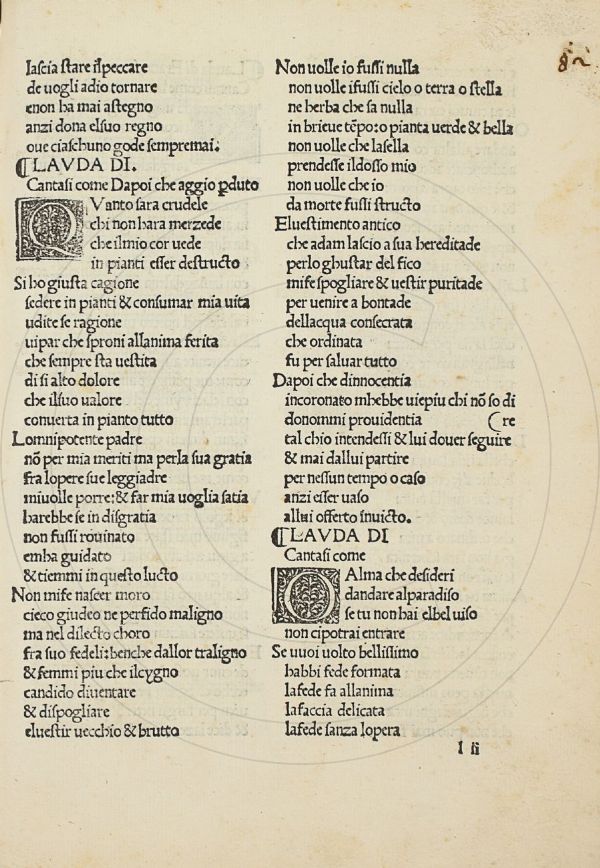 lascia stare ilpeccare
de uogli adio tornare
enon ha mai astegno
anzi dona elsuo regno
oue ciaschuno gode sempremai.
¶LAVDA DI.
Cantasi come Dapoi che aggio pduto
QVanto sara crudele
chi non hara merzede
che ilmio cor uede
in pianti esser destructo
Si ho giusta cagione
sedere in pianti & consumar mia uita
udite se ragione
uipar che sproni allanima ferita
che sempre sta uestita
di si alto dolore
che ilsuo ualore
conuerta in pianto tutto
Lomnipotente padre
nō per mia meriti ma perla sua gratia
fra lopere sue leggiadre
miuolle porre: & far mia uoglia satia
harebbe se in disgratia
non fussi rouinato
emba guidato
& tiemmi in questo lucto
Non mife nascer moro
cieco giudeo ne perfido maligno
ma nel dilecto choro
fra suo fedeli: benche dallor traligno
& femmi piu che ilcygno
candido diuentare
& dispogliare
eluestir uecchio & brutto
Non uolle io fussi nulla
non uolle ifussi cielo o terra o stella
ne herba che sa nulla
in brieue tēpo: o pianta uerde & bella
non uolle che lasella
prendesse ildosso mio
non uolle che io
da morte fussi structo
Eluestimento antico
che adam lascio a sua hereditade
perlo ghustar del fico
mife spogliare & uestir puritade
per uenire a bontade
dellacqua consecrata
che ordinata
fu per saluar tutto
Dapoi che dinnocentia
incoronato mhebbe uiepiu chi nō so di
donommi prouidentia (re
tal chio intendessi & lui douer seguire
& mai dallui partire
per nessun tempo o caso
anzi esser uaso
allui offerto inuicto.
¶LAVDA DI
Cantasi come
O Alma che desideri
dandare alparadiso
se tu non hai elbel uiso
non cipotrai entrare
Se uuoi uolto bellissimo
habbi fede formata
lafede fa allanima
lafaccia delicata
lafede sanza lopera
l ii